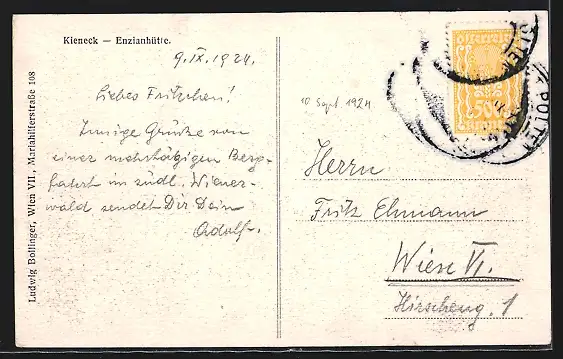 Kieneck — Enzianhütte.
9.IX.1924.
Liebes Fritzchen!
Innige Grüße von
einer mehrtägigen Berg-
fahrt im südl. Wiener-
wald sendet Dir Dein
Adolf.
Ludwig Bollinger, Wien VII., Mariahilferstraße 108
10 Sept. 1924
Österreich
500
ST. PÖLTEN
Herrn
Fritz Ehmann
Wien VI.
Hirscheng. 1